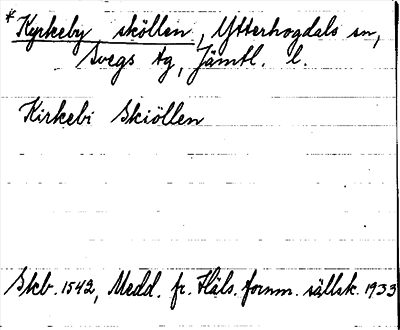 *Kyrkeby sköllen, Ytterhogdals sn,
Svegs tg, Jämtl. l.
Kirkebi Skiöllen
Skb. 1542, Medd. fr. Häls. fornm. sällsk. 1933